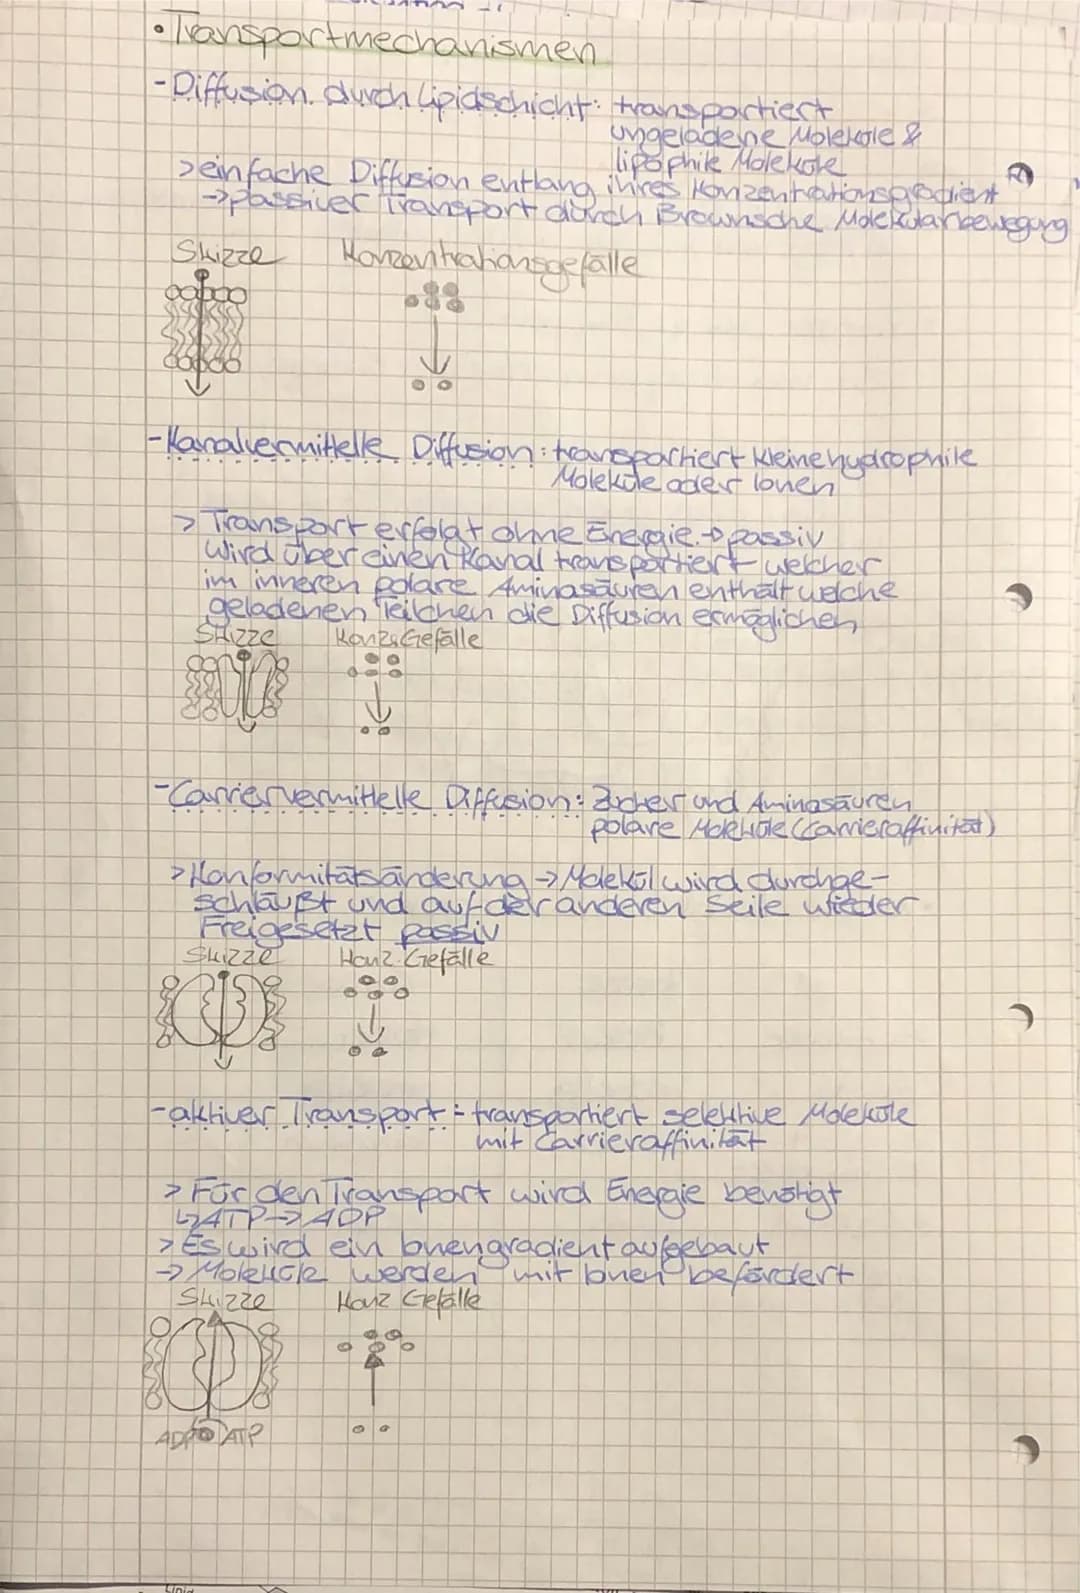 • Transportmechanismen
- Diffusion durch Lipidschicht: transportiert
ungeladene Moleküle &
lipophile Moleküle
> einfache Diffusion entlang ihres Konzentrationsgradient
→ passiver Transport durch Brownsche Molekularbewegung
Skizze Konzentrationsgefälle
- Kanalvermittelle Diffusion: transportiert kleine hydrophile
Moleküle oder Ionen
> Transport erfolgt ohne Energie → passiv
Wird über einen Kanal transportiert welcher
im inneren polare Aminosäuren enthält welche
geladenen Teilchen die Diffusion ermöglichen
Skizze Konz. Gefälle
- Carriervermittelle Diffusion: Zucker und Aminosäuren
polare Moleküle (Carrieraffinität)
> Konformitätsänderung → Molekül wird durchge-
schläußt und auf der anderen Seile wieder
Freigesetzt passiv
Skizze Konz. Gefälle
- aktiver Transport: transportiert selektive Moleküle
mit Carrieraffinität
> Für den Transport wird Energie benötigt
↳ ATP → ADP
> Es wird ein Ionengradient aufgebaut
→ Moleküle werden mit Ionen befördert
Skizze Konz Gefälle
ADP ATP
Lipid